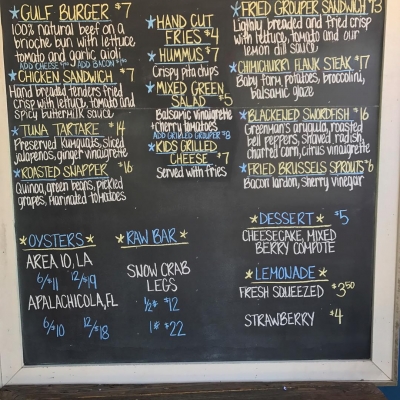 GULF BURGER $7
100% natural beef on a
brioche bun with lettuce
tomato and garlic aioli
ADD CHEESE $1.00 ADD BACON $1.00
CHICKEN SANDWICH $7
Hand breaded tenders fried
crisp with lettuce, tomato and
spicy buttermilk sauce
TUNA TARTARE $14
Preserved Kumquats, sliced
jalapenos, ginger vinaigrette
ROASTED SNAPPER $16
Quinoa, green beans, pickled
grapes, marinated tomatoes
HAND CUT
FRIES $4
HUMMUS $7
Crispy pita chips
MIXED GREEN
SALAD $5
Balsamic vinaigrette
+ cherry tomatoes
ADD GRILLED GROUPER $8
KIDS GRILLED
CHEESE $7
Served with fries
FRIED GROUPER SANDWICH $13
Lightly breaded and fried crisp
with lettuce, tomato and our
lemon dill sauce
CHIMICHURRI FLANK STEAK $17
Baby farm potatoes, broccolini,
balsamic glaze
BLACKENED SWORDFISH $16
Greenman's arugula, roasted
bell peppers, shaved radish,
charred corn, citrus vinaigrette
FRIED BRUSSELS SPROUTS $6
Bacon lardon, sherry vinegar
DESSERT $5
CHEESECAKE, MIXED
BERRY COMPOTE
OYSTERS
AREA 10, LA
6/$11 12/$19
APALACHICOLA, FL
6/$10 12/$18
RAW BAR
SNOW CRAB
LEGS
1/2# $12
1# $22
LEMONADE
FRESH SQUEEZED $3.50
STRAWBERRY $4